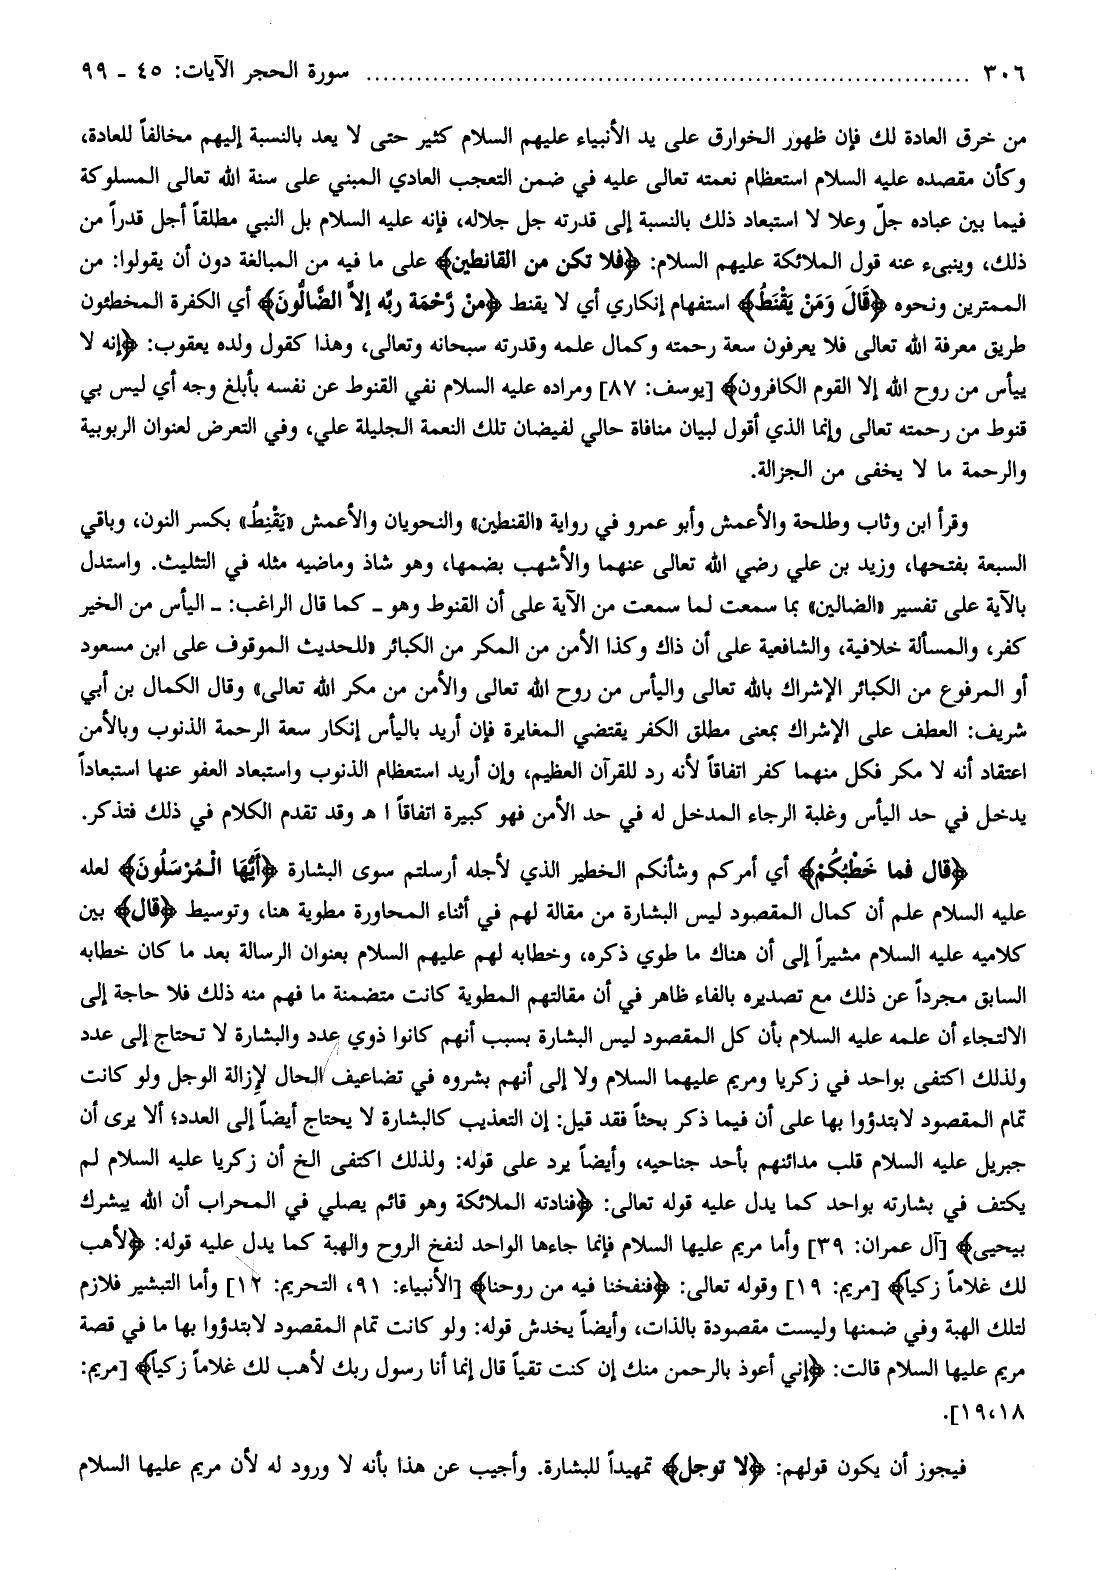 ٣٠٦ ........................................................................ سورة الحجر الآيات: ٤٥ ـ ٩٩
من خرق العادة لك فإن ظهور الخوارق على يد الأنبياء عليهم السلام كثير حتى لا يعد بالنسبة إليهم مخالفاً للعادة،
وكأن مقصده عليه السلام استعظام نعمته تعالى عليه في ضمن التعجب العادي المبني على سنة الله تعالى المسلوكة
فيما بين عباده جلّ وعلا لا استبعاد ذلك بالنسبة إلى قدرته جل جلاله، فإنه عليه السلام بل النبي مطلقاً أجل قدراً من
ذلك، وينبىء عنه قول الملائكة عليهم السلام: ﴿فلا تكن من القانطين﴾ على ما فيه من المبالغة دون أن يقولوا: من
الممترين ونحوه ﴿قَالَ وَمَنْ يَقْنَطُ﴾ استفهام إنكاري أي لا يقنط ﴿مِنْ رَّحْمَة ربِّه إلاَّ الضَّالُّونَ﴾ أي الكفرة المخطئون
طريق معرفة الله تعالى فلا يعرفون سعة رحمته وكمال علمه وقدرته سبحانه وتعالى، وهذا كقول ولده يعقوب: ﴿إنه لا
ييأس من روح الله إلا القوم الكافرون﴾ [يوسف: ٨٧] ومراده عليه السلام نفي القنوط عن نفسه بأبلغ وجه أي ليس بي
قنوط من رحمته تعالى وإنما الذي أقول لبيان منافاة حالي لفيضان تلك النعمة الجليلة علي، وفي التعرض لعنوان الربوبية
والرحمة ما لا يخفى من الجزالة.
وقرأ ابن وثاب وطلحة والأعمش وأبو عمرو في رواية «القنطين» والنحويان والأعمش «يَقْنِطُ» بكسر النون، وباقي
السبعة بفتحها، وزيد بن علي رضي الله تعالى عنهما والأشهب بضمها، وهو شاذ وماضيه مثله في التثليث. واستدل
بالآية على تفسير «الضالين» بما سمعت لما سمعت من الآية على أن القنوط وهو ـ كما قال الراغب: ـ اليأس من الخير
كفر، والمسألة خلافية، والشافعية على أن ذاك وكذا الأمن من المكر من الكبائر «للحديث الموقوف على ابن مسعود
أو المرفوع من الكبائر الإشراك بالله تعالى واليأس من روح الله تعالى والأمن من مكر الله تعالى» وقال الكمال بن أبي
شريف: العطف على الإشراك بمعنى مطلق الكفر يقتضي المغايرة فإن أريد باليأس إنكار سعة الرحمة الذنوب وبالأمن
اعتقاد أنه لا مكر فكل منهما كفر اتفاقاً لأنه رد للقرآن العظيم، وإن أريد استعظام الذنوب واستبعاد العفو عنها استبعاداً
يدخل في حد اليأس وغلبة الرجاء المدخل له في حد الأمن فهو كبيرة اتفاقاً ا هـ وقد تقدم الكلام في ذلك فتذكر.
﴿قال فما خَطْبُكُمْ﴾ أي أمركم وشأنكم الخطير الذي لأجله أرسلتم سوى البشارة ﴿أَيُّهَا الْمُرْسَلُونَ﴾ لعله
عليه السلام علم أن كمال المقصود ليس البشارة من مقالة لهم في أثناء المحاورة مطوية هنا، وتوسيط ﴿قال﴾ بين
كلاميه عليه السلام مشيراً إلى أن هناك ما طوي ذكره، وخطابه لهم عليهم السلام بعنوان الرسالة بعد ما كان خطابه
السابق مجرداً عن ذلك مع تصديره بالفاء ظاهر في أن مقالتهم المطوية كانت متضمنة ما فهم منه ذلك فلا حاجة إلى
الالتجاء أن علمه عليه السلام بأن كل المقصود ليس البشارة بسبب أنهم كانوا ذوي عدد والبشارة لا تحتاج إلى عدد
ولذلك اكتفى بواحد في زكريا ومريم عليهما السلام ولا إلى أنهم بشروه في تضاعيف الحال لإزالة الوجل ولو كانت
تمام المقصود لابتدؤوا بها على أن فيما ذكر بحثاً فقد قيل: إن التعذيب كالبشارة لا يحتاج أيضاً إلى العدد؛ ألا يرى أن
جبريل عليه السلام قلب مدائنهم بأحد جناحيه، وأيضاً يرد على قوله: ولذلك اكتفى الخ أن زكريا عليه السلام لم
يكتف في بشارته بواحد كما يدل عليه قوله تعالى: ﴿فنادته الملائكة وهو قائم يصلي في المحراب أن الله يبشرك
بيحيى﴾ [آل عمران: ٣٩] وأما مريم عليها السلام فإنما جاءها الواحد لنفخ الروح والهبة كما يدل عليه قوله: ﴿لأهب
لك غلاماً زكياً﴾ [مريم: ١٩] وقوله تعالى: ﴿فنفخنا فيه من روحنا﴾ [الأنبياء: ٩١، التحريم: ١٢] وأما التبشير فلازم
لتلك الهبة وفي ضمنها وليست مقصودة بالذات، وأيضاً يخدش قوله: ولو كانت تمام المقصود لابتدؤوا بها ما في قصة
مريم عليها السلام قالت: ﴿إني أعوذ بالرحمن منك إن كنت تقياً قال إنما أنا رسول ربك لأهب لك غلاماً زكياً﴾ [مريم:
١٨،١٩].
فيجوز أن يكون قولهم: ﴿لا توجل﴾ تمهيداً للبشارة. وأجيب عن هذا بأنه لا ورود له لأن مريم عليها السلام